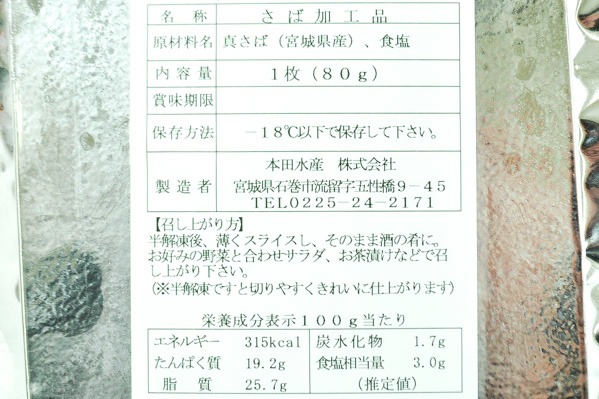 名称 さば加工品
原材料名 真さば（宮城県産）、食塩
内容量 １枚（８０ｇ）
賞味期限
保存方法 －１８℃以下で保存して下さい。
本田水産 株式会社
製造者 宮城県石巻市流留字五性橋９－４５
ＴＥＬ０２２５－２４－２１７１
【召し上がり方】
半解凍後、薄くスライスし、そのまま酒の肴に。
お好みの野菜と合わせサラダ、お茶漬けなどで召
し上がり下さい。
（※半解凍ですと切りやすくきれいに仕上がります）
栄養成分表示１００ｇ当たり
エネルギー 315kcal 炭水化物 1.7g
たんぱく質 19.2g 食塩相当量 3.0g
脂質 25.7g （推定値）